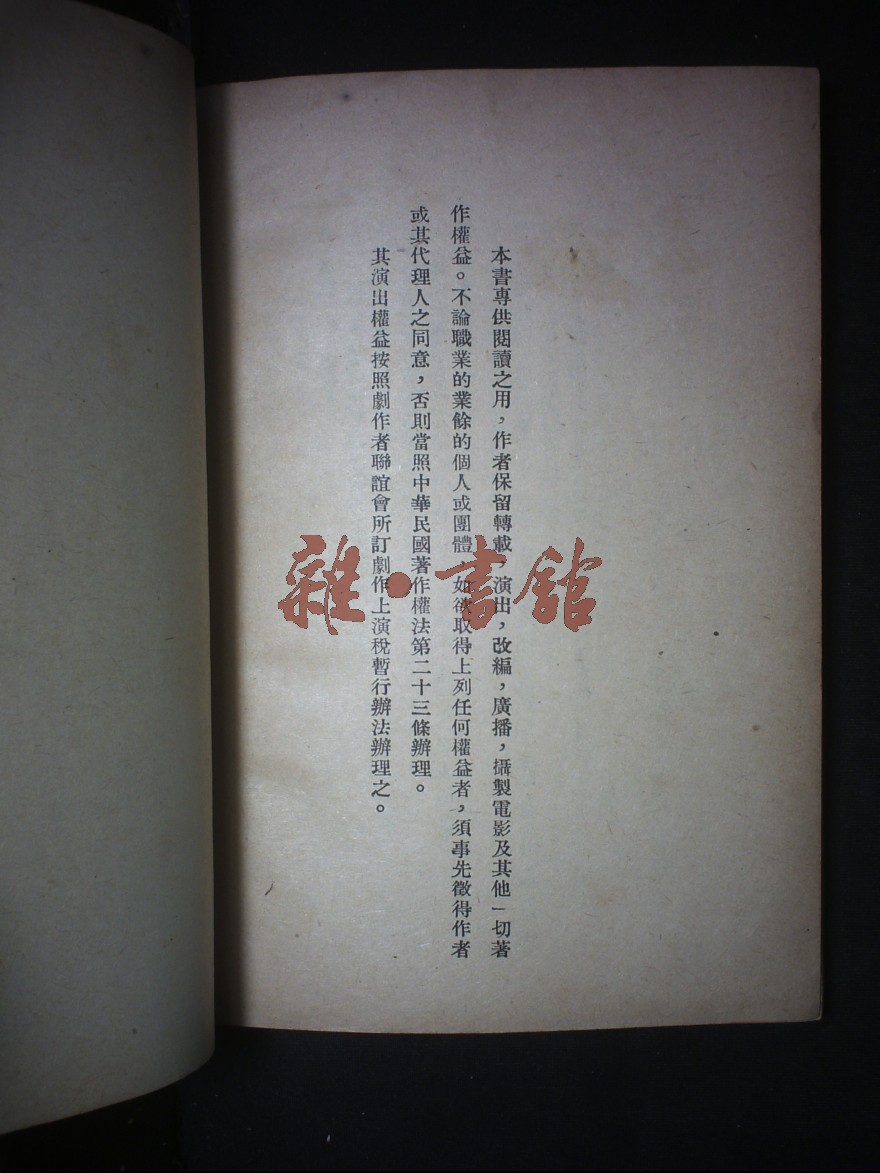 本書專供閱讀之用，作者保留轉載，演出，改編，廣播，攝製電影及其他一切著
作權益。不論職業的業餘的個人或團體，如欲取得上列任何權益者，須事先徵得作者
或其代理人之同意，否則當照中華民國著作權法第二十三條辦理。
其演出權益按照劇作者聯誼會所訂劇作上演稅暫行辦法辦理之。
雜·書館